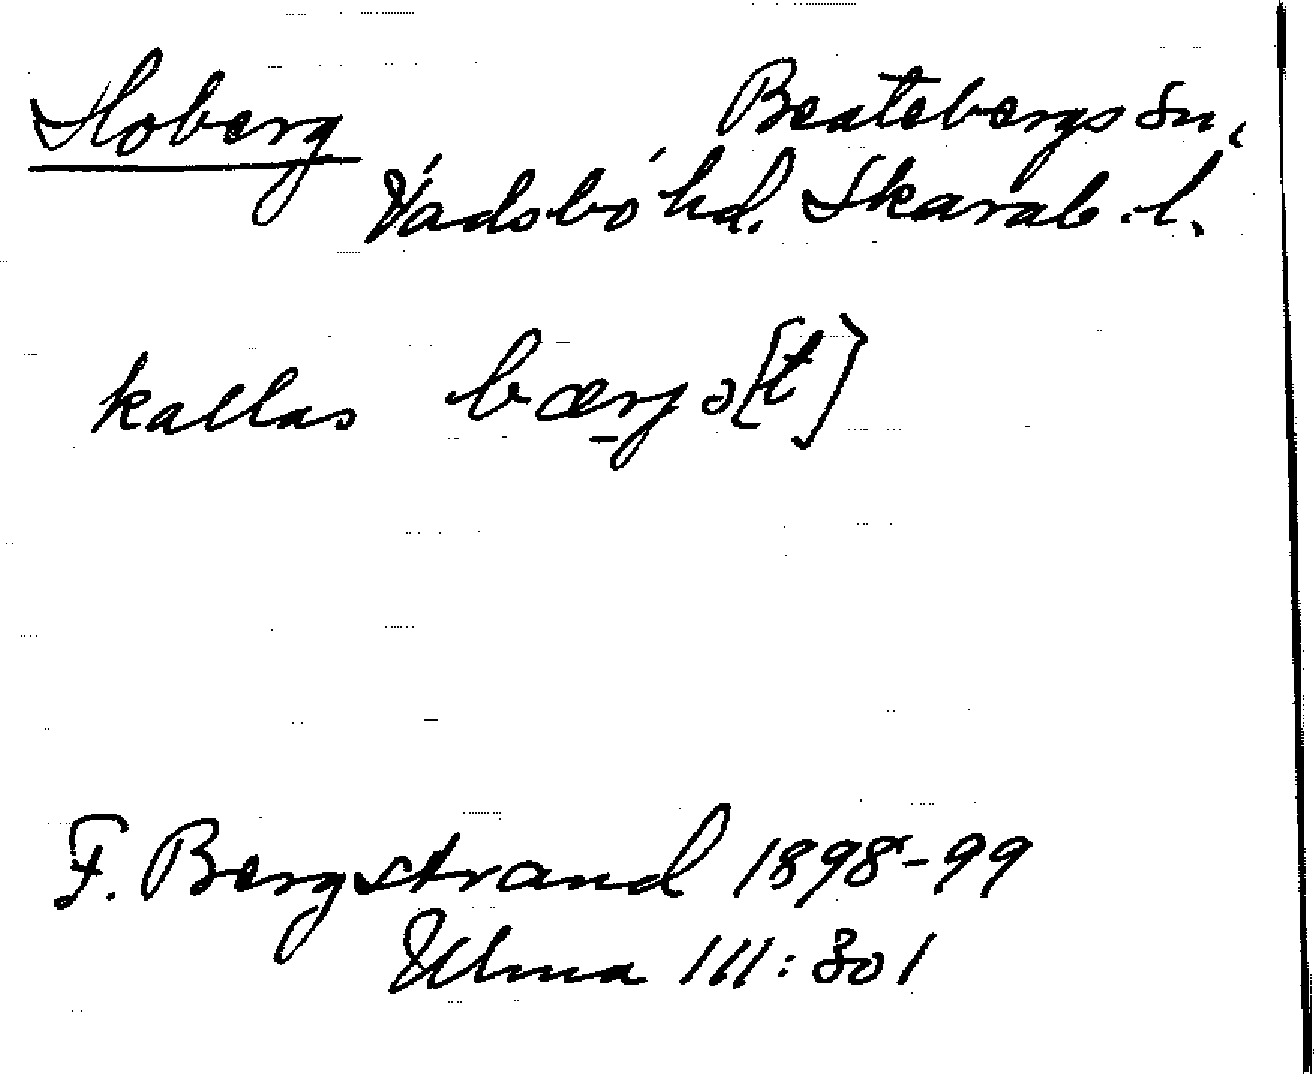 Hoberg
Beatebergs Sn,
Vadsbo hd. Skarab. l.
kallas bærjə[t]
F. Bergstrand 1898-99
Ulma 111:301